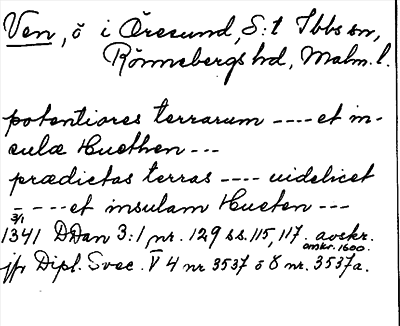 Ven, ö i Öresund, S:t Ibbs sn,
Rönnebergs hd, Malm. l.
potentiores terrarum ---- et in-
sulæ Huethen ---
prædictas terras ---- uidelicet
- ---- et insulam Hueten ---
3/1
1341 DDan 3:1 nr. 129 ss. 115, 117. avskr.
omkr. 1600.
jfr Dipl. Svec. V 4 nr 3537 o 8 nr. 3537a.